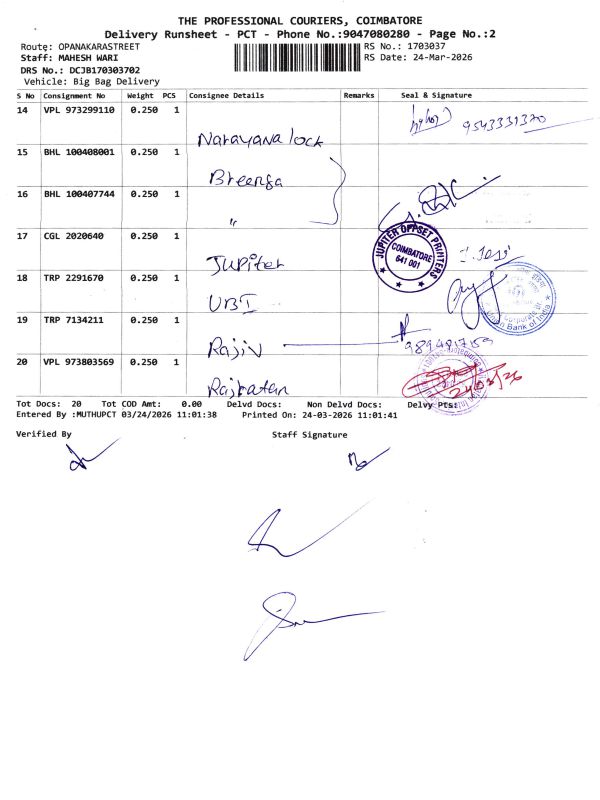 THE PROFESSIONAL COURIERS, COIMBATORE
Delivery Runsheet - PCT - Phone No.:9047080280 - Page No.:2
Route: OPANAKARASTREET
RS No.: 1703037
Staff: MAHESH WARI
RS Date: 24-Mar-2026
DRS No.: DCJB170303702
Vehicle: Big Bag Delivery
S No Consignment No Weight PCS Consignee Details Remarks Seal & Signature
14 VPL 973299110 0.250 1 Narayana lock
15 BHL 100408001 0.250 1 Breenga
16 BHL 100407744 0.250 1 "
17 CGL 2020640 0.250 1 Jupiter
JUPITER OFFSET PRINTERS
COIMBATORE
641 001
18 TRP 2291670 0.250 1 UBI
Union Bank of India
19 TRP 7134211 0.250 1 Rajiv
20 VPL 973803569 0.250 1 Rajratan
24/03/26
Tot Docs: 20 Tot COD Amt: 0.00 Delvd Docs: Non Delvd Docs: Delvy Pts:
Entered By :MUTHUPCT 03/24/2026 11:01:38 Printed On: 24-03-2026 11:01:41
Verified By Staff Signature